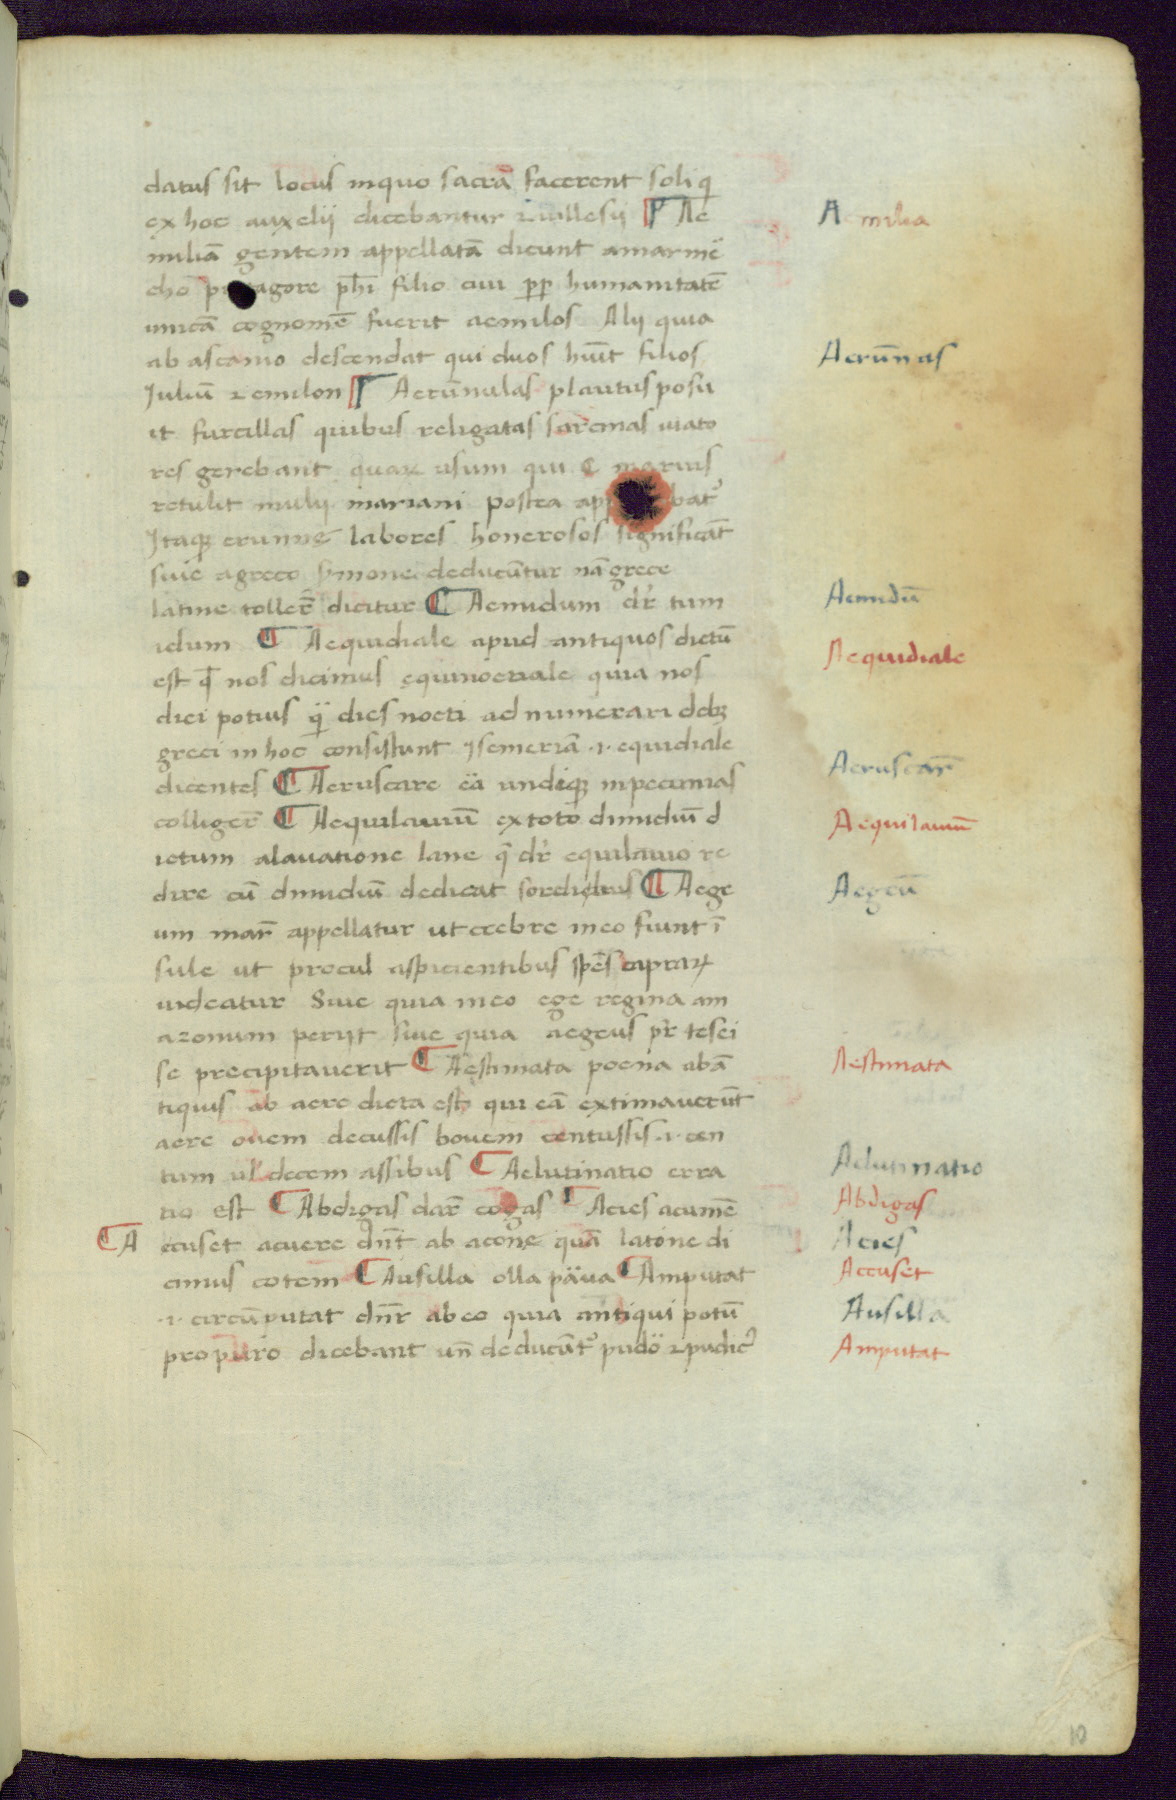 datus sit locus inquo sacrā facerent soli q
ex hoc auxelij dicebantur ⁊ uallesij ¶ Ae
miliā gentem appellatā dicunt amarmē
cho agore phī filio cui pp humanitatē
unicā cognomē fuerit aemilos Alij quia
ab ascanio descendat qui duos hūit filios
Juliū ⁊ emilon ¶ Aerūnulas plautus posu
it furcillas quibus religatas sarcinas uiato
res gerebant quaꝝ usum qui C marius
retulit mulij mariani postea bat᷒
Jtaqꝫ erumnę labores honerosos significāt
siue agreco sermone deducūtur nā grece
latine tollerē dicitur ¶ Aemidum dr̄ tum
idum ¶ Aequidiale apud antiquos dictū
est q̄ nos dicimus equinoctiale quia nos
diei potius q̄ dies nocti ad numerari debꝫ
greci in hoc consistunt Jsemeriā .i. equidiale
dicentes ¶ Aeruscare ēā undiqꝫ inpecunias
colligerē ¶ Aequilauiū ex toto dimidiū d
ictum alauatione lane q̄ dr̄ equilauio re
dire cū dimidiū dedicat sordidius ¶ Aege
um marē appellatur ut crebre ineo fiunt ī
sule ut procul aspicientibus spēs capraꝝ
uideatur Siue quia ineo ege regina am
azonum perijt siue quia aegeus pr̄ tesei
se precipitauerit ¶ Aestimata poena abā
tiquis ab aere dicta est qui eā extimauerūt
aere ouem decussis bouem centussis .i. cen
tum ul̄ decem assibus ¶ Aelutinatio erra
tio est ¶ Abdigas darē cogas ¶ Acies acumē
¶ A ccuset acuere dn̄t ab acone quā latone di
cimus cotem ¶ Ausilla olla pāua ¶ Amputat
.i. circūputat dn̄r abeo quia antiqui potū
pro puro dicebant un̄ deducūt᷒ pudō ⁊ pudic᷒
Aemilia
Aerūnas
Aemidū
Aequidiale
Aeruscarē
Aequilauiū
Aegeū
Aestimata
Aelutinatio
Abdigas
Acies
Accuset
Ausilla
Amputat
10